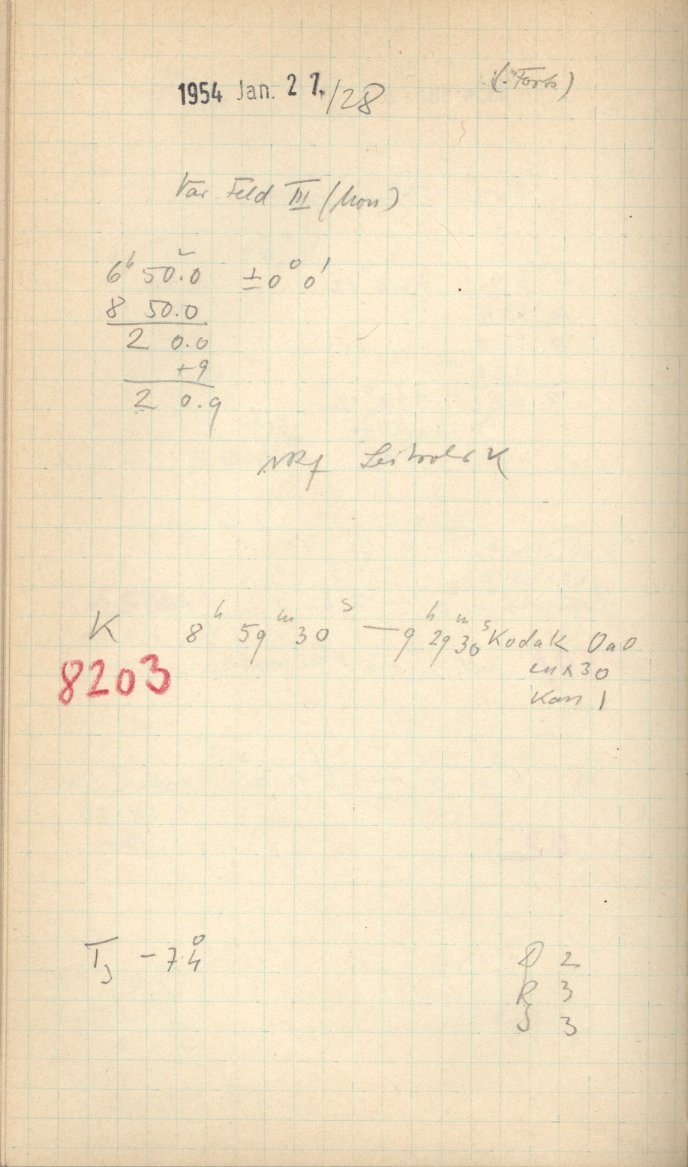 1954 Jan. 27./28 (Forts)
Var. Feld III (Mon)
6h 50.0 ±0° 0'
8 50.0
2 0.0
+9
2 0.9
K 8h 59m 30s — 9h 29m 30s Kodak OaO
8203
Kass 1
-7.4°
D 2
R 3
S 3